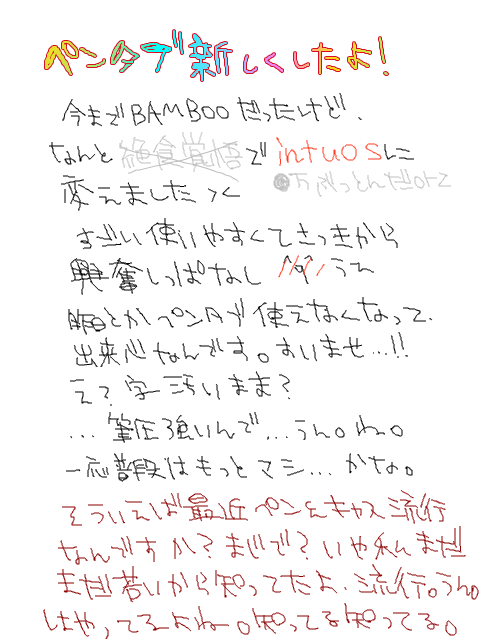 ペンタブ新しくしたよ!
今までBAMBOOだったけど、
なんと絶食覚悟でintuosに
●万ぶっとんだorz
変えましたっく
すごい使いやすくてさっきから
興奮しっぱなし ///うえ
昨日とかペンタブ使えなくなって、
出来心なんです。すいませ…!!
え?字汚いまま?
…筆圧強いんで…うん。ね。
一応普段はもっとマシ…かな。
そういえば最近ペンとキャス流行
なんですか?まじで?いや私まだ
まだ若いから知ってたよ、流行。うん。
はやってるよね。知ってる知ってる。